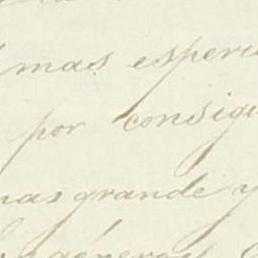 mas esperi
por consigu
mas grande y
géneros